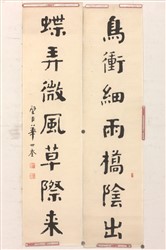 鳥衝細雨橋陰出
蝶弄微風草際来